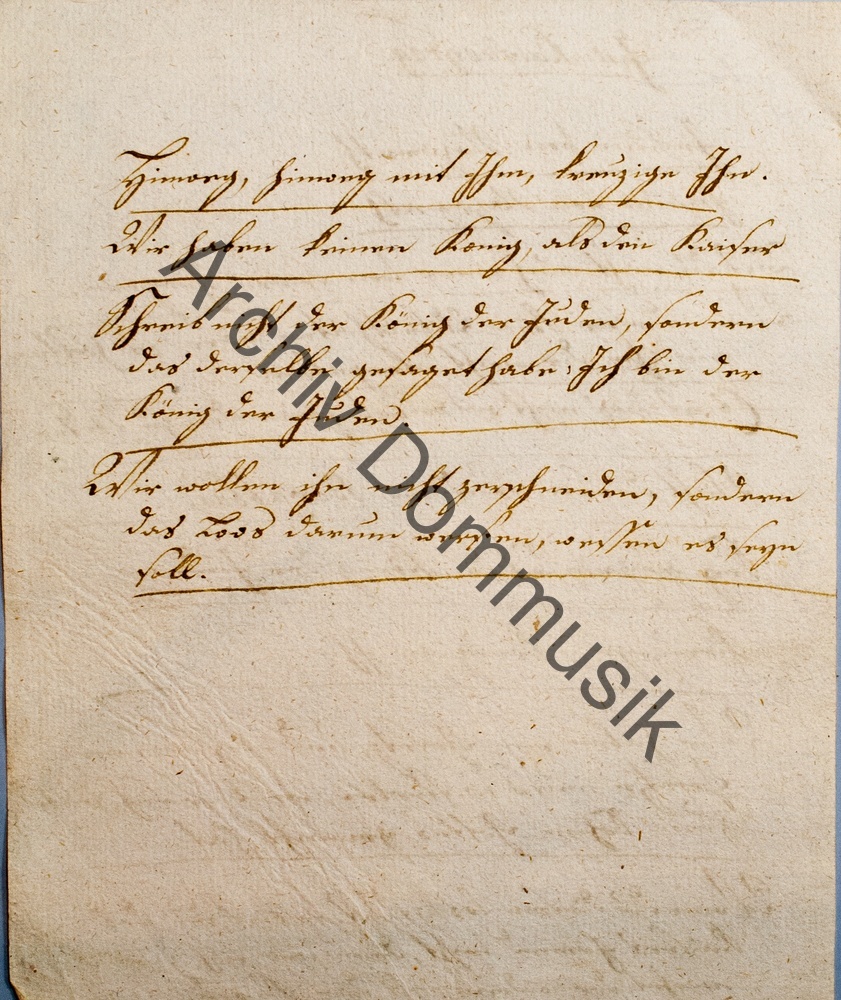 Hinweg, hinweg mit Ihm, kreuzige Ihn.
Wir haben keinen König, als den Kaiser
Schreib nicht der König der Juden, sondern
das derselbe gesaget habe: Ich bin der
König der Juden.
Wir wollen ihn nicht zerschneiden, sondern
das Loos darum werffen, wessen es seyn
soll.
Archiv Dommusik